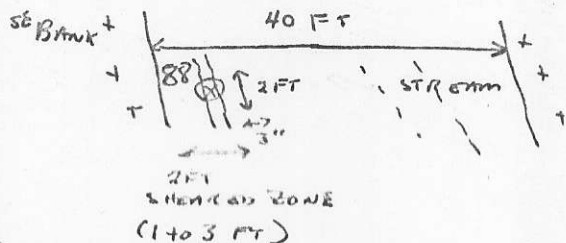 40 FT
SE BANK
88
2FT
STREAM
3"
2FT
SHEARED ZONE
(1 to 3 FT)